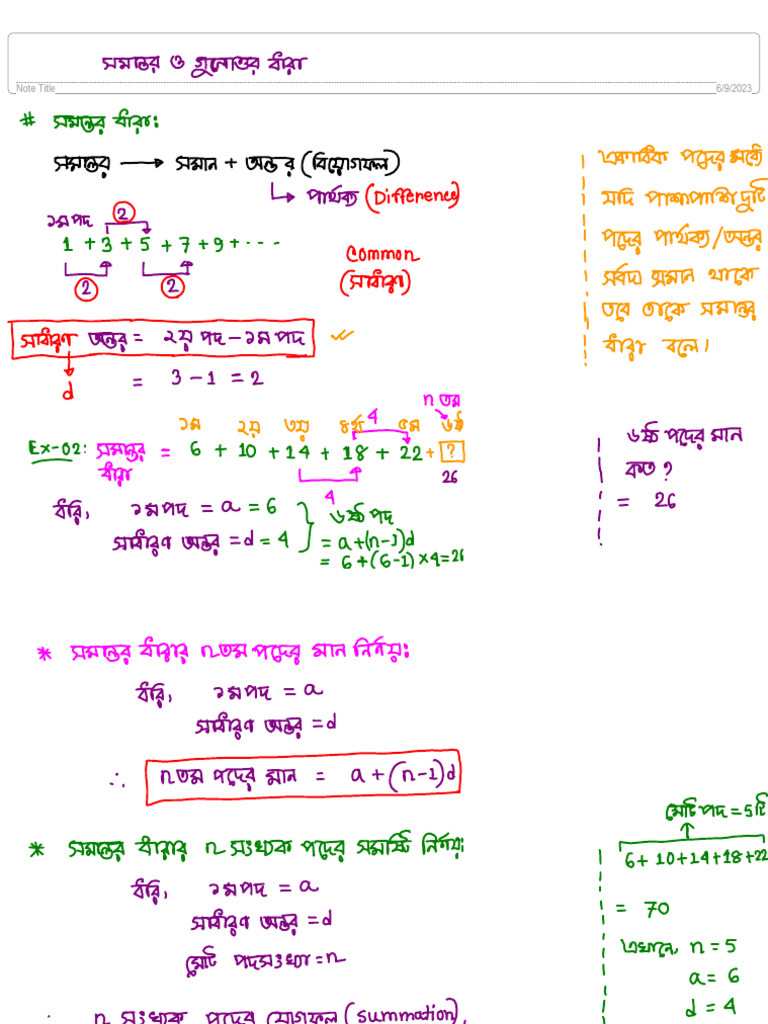 সমান্তর ও গুনোত্তর ধারা
Note Title
6/9/2023
# সমান্তর ধারা:
সমান্তর → সমান + অন্তর (বিয়োগফল)
↳ পার্থক্য (Difference)
১ম পদ
2
1 + 3 + 5 + 7 + 9 + ...
2 2
Common
(সাধারণ)
সাধারণ অন্তর = ২য় পদ - ১ম পদ
d
= 3 - 1 = 2
একাধিক পদের মধ্যে
যদি পাশাপাশি দুটি
পদের পার্থক্য/অন্তর
সর্বদা সমান থাকে
তবে তাকে সমান্তর
ধারা বলে।
n তম
4
১ম ২য় ৩য় ৪র্থ ৫ম ৬ষ্ঠ
Ex-02: সমান্তর ধারা = 6 + 10 + 14 + 18 + 22 + ?
26
4
ধরি, ১ম পদ = a = 6
সাধারণ অন্তর = d = 4
৬ষ্ঠ পদ
= a+(n-1)d
= 6+(6-1)×4=26
৬ষ্ঠ পদের মান
কত?
= 26
* সমান্তর ধারার n তম পদের মান নির্ণয়:
ধরি, ১ম পদ = a
সাধারণ অন্তর = d
∴ n তম পদের মান = a+(n-1)d
* সমান্তর ধারার n সংখ্যক পদের সমষ্টি নির্ণয়:
ধরি, ১ম পদ = a
সাধারণ অন্তর = d
মোট পদসংখ্যা = n
∴ n সংখ্যক পদের যোগফল (summation),
মোট পদ = 5 টি
6+10+14+18+22
= 70
এখানে, n = 5
a = 6
d = 4